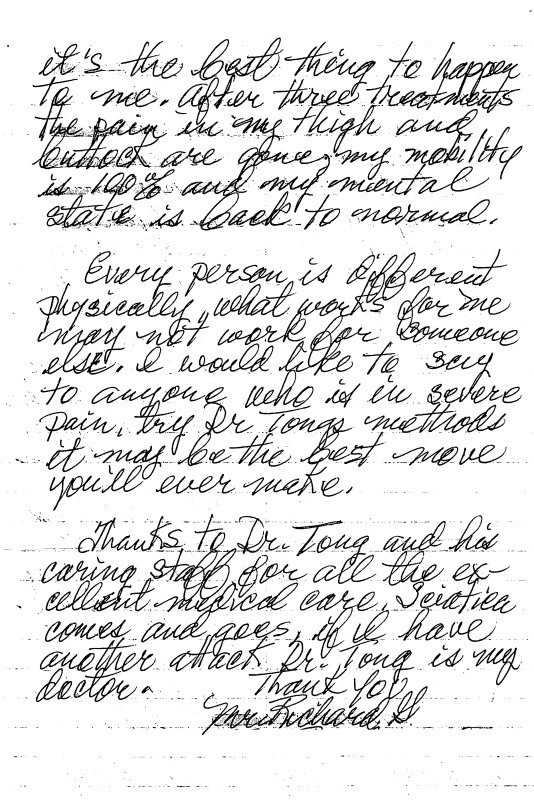 it's the best thing to happen
to me. After three treatments
the pain in my thigh and
buttock are gone, my mobility
is 100% and my mental
state is back to normal.
Every person is different
physically, what works for me
may not work for someone
else. I would like to say
to anyone who is in severe
pain, try Dr Tongs methods
it may be the best move
you'll ever make.
Thanks to Dr. Tong and his
caring staff for all the ex-
cellent medical care. Sciatica
comes and goes, if I have
another attack Dr. Tong is my
doctor. Thank You
Mr. Richard G